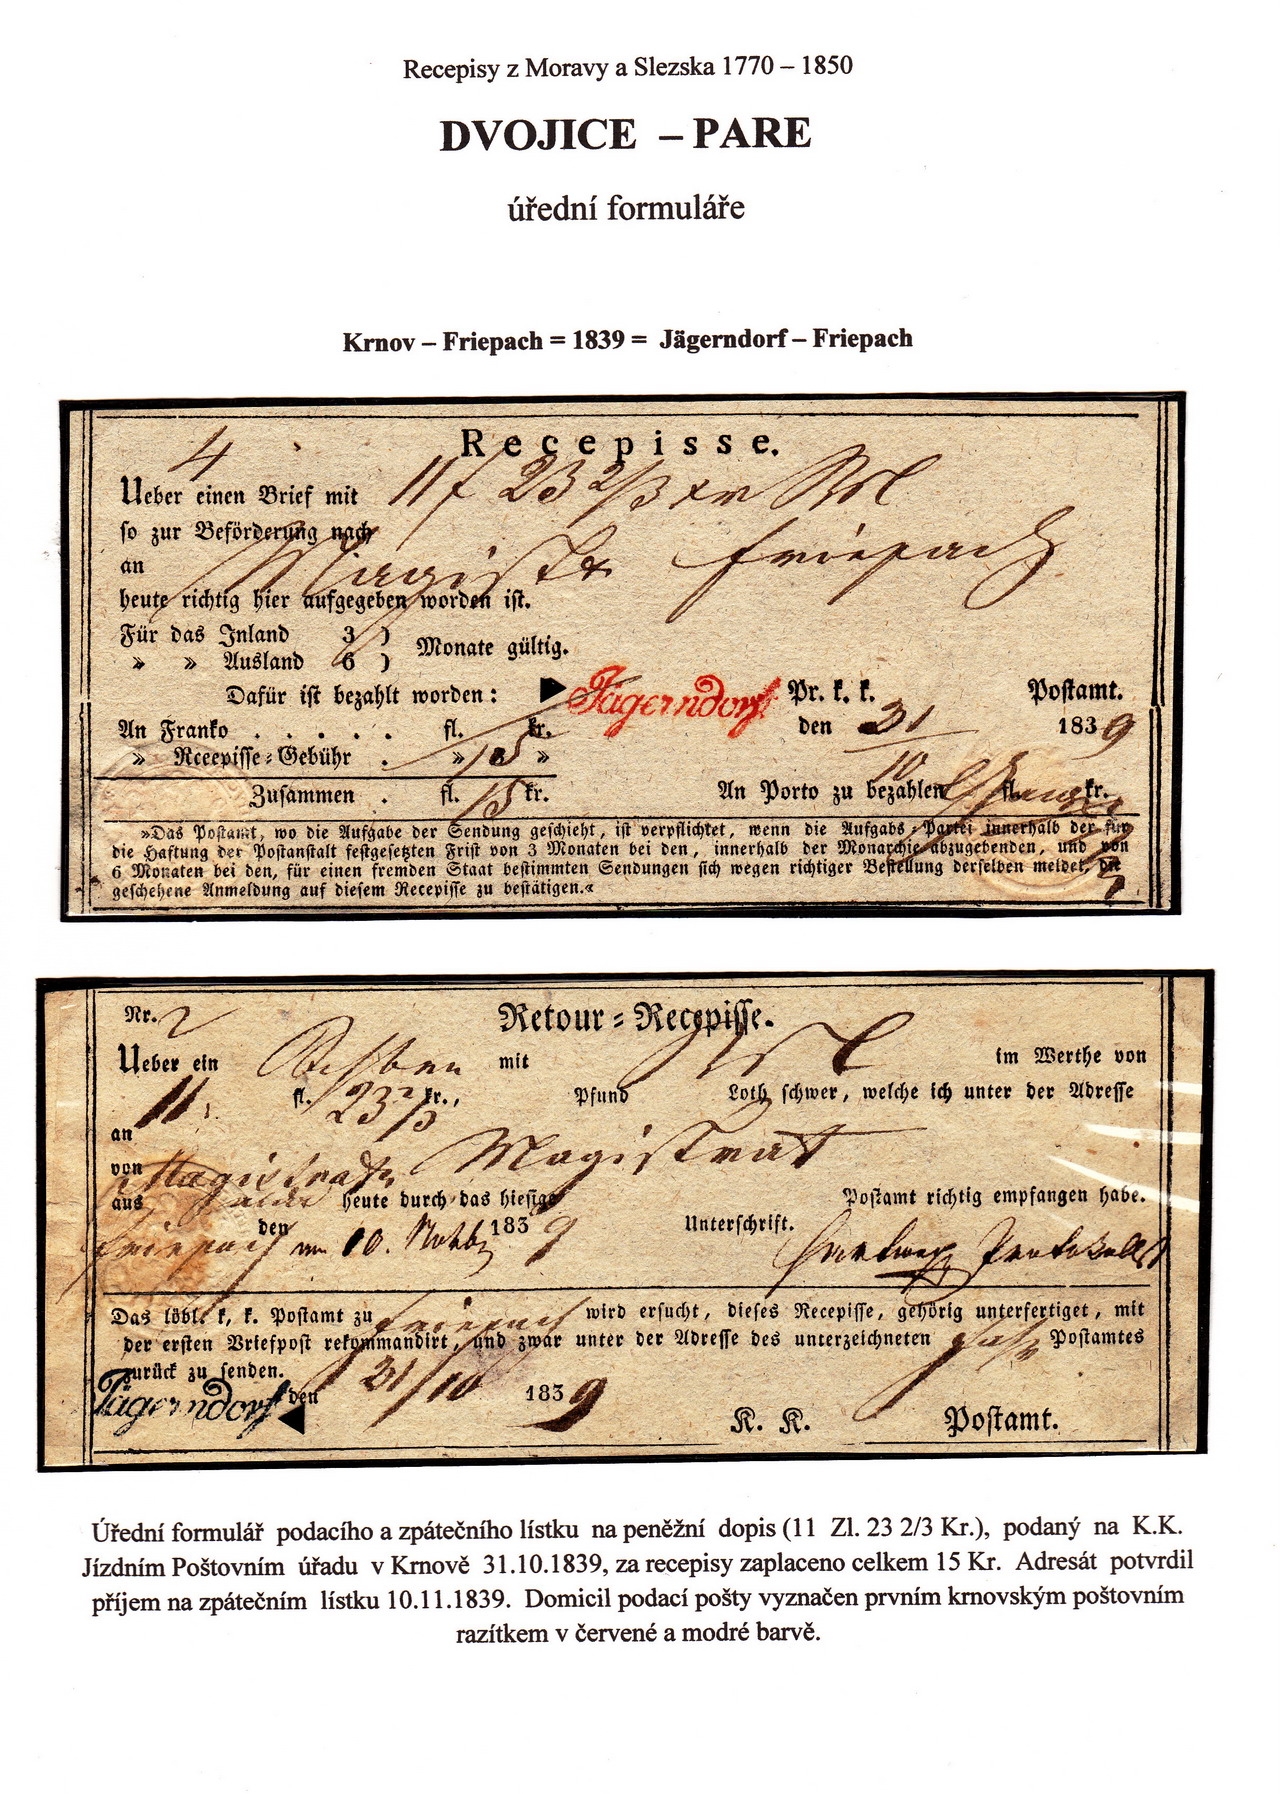 Recepisy z Moravy a Slezska 1770 – 1850
DVOJICE – PARE
úřední formuláře
Krnov – Friepach = 1839 = Jägerndorf – Friepach
Recepisse.
4
Ueber einen Brief mit 11 f 23 2/3 xr
so zur Beförderung nach
an Magistr Friepach
heute richtig hier aufgegeben worden ist.
Für das Inland 3 )
» » Ausland 6 ) Monate gültig.
Dafür ist bezahlt worden: Jägerndorf Pr. k. k. Postamt.
An Franko . . . . . fl. kr. den 31/10 1839
» Rceepisse-Gebühr . » 15 »
Zusammen . fl. 15 kr. An Porto zu bezahlen fl. kr.
»Das Postamt, wo die Aufgabe der Sendung geschieht, ist verpflichtet, wenn die Aufgabs-Partei innerhalb der für
die Haftung der Postanstalt festgesetzten Frist von 3 Monaten bei den, innerhalb der Monarchie abzugebenden, und von
6 Monaten bei den, für einen fremden Staat bestimmten Sendungen sich wegen richtiger Bestellung derselben meldet, die
geschehene Anmeldung auf diesem Recepisse zu bestätigen.«
Nr. 2 Retour-Recepisse.
Ueber ein mit im Werthe von
11 fl. 23 2/3 kr., Pfund Loth schwer, welche ich unter der Adresse
an Magistrat
von Magistrate
aus heute durch das hiesige Postamt richtig empfangen habe.
Friepach am den 10. Novbr 1839 Unterschrift.
Das löbl. k. k. Postamt zu Friepach wird ersucht, dieses Recepisse, gehörig unterfertiget, mit
der ersten Briefpost rekommandirt, und zwar unter der Adresse des unterzeichneten Postamtes
zurück zu senden.
Jägerndorf den 31/10 1839
K. K. Postamt.
Úřední formulář podacího a zpátečního lístku na peněžní dopis (11 Zl. 23 2/3 Kr.), podaný na K.K.
Jízdním Poštovním úřadu v Krnově 31.10.1839, za recepisy zaplaceno celkem 15 Kr. Adresát potvrdil
příjem na zpátečním lístku 10.11.1839. Domicil podací pošty vyznačen prvním krnovským poštovním
razítkem v červené a modré barvě.